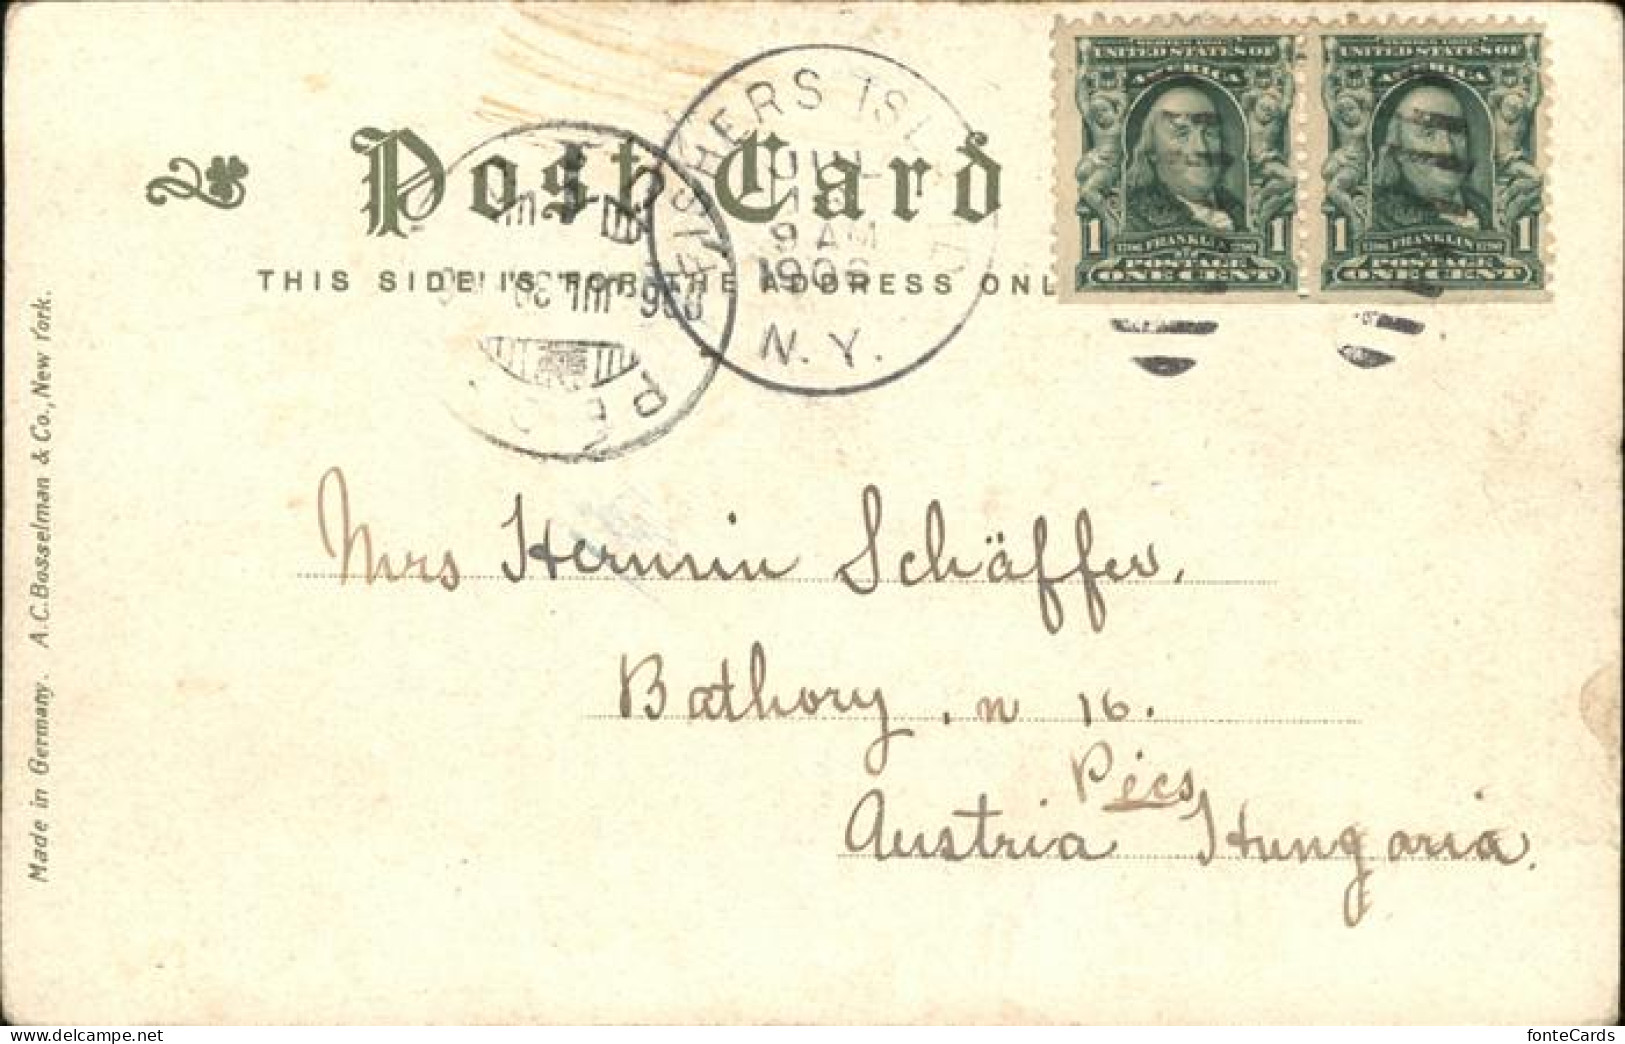 Post Card
THIS SIDE IS FOR THE ADDRESS ONL
FISHERS ISLAND
JUL
9 AM
1906
N. Y.
906 JUL 30
PÉCS
UNITED STATES OF
AMERICA
1 FRANKLIN 1
POSTAGE
ONE CENT
UNITED STATES OF
AMERICA
1 FRANKLIN 1
POSTAGE
ONE CENT
Mrs Hermin Schäffer.
Bathory . n 16.
Pécs
Austria Hungaria.
Made in Germany. A.C.Bosselman & Co., New York.
www.delcampe.net
fonteCards